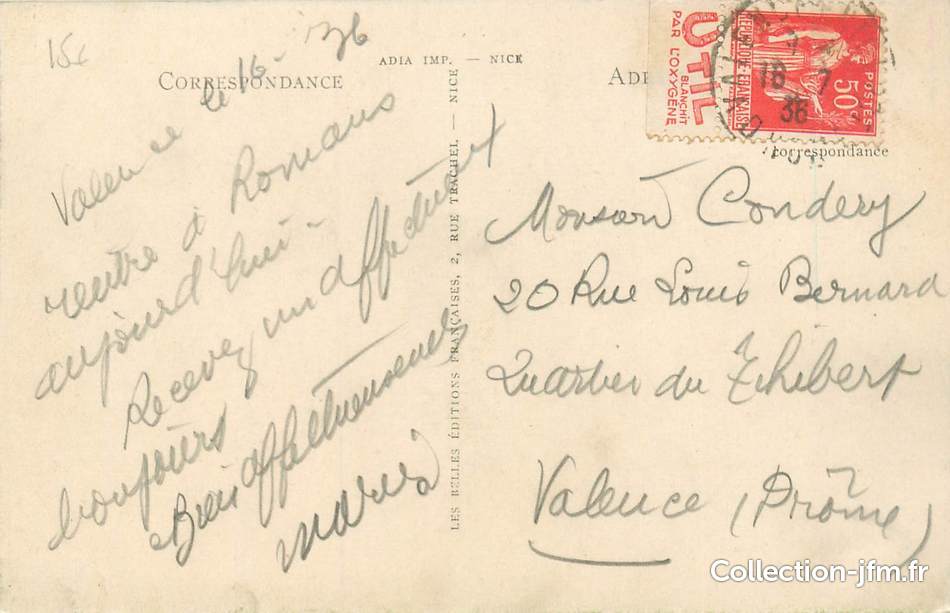 15c
CORRESPONDANCE
ADIA IMP. — NICE
Valence le 16- 36
rentre à Romans
aujourd'hui-
Recevez un affectueux
bonjours
Bien affectueusement
Maria
LES BELLES ÉDITIONS FRANÇAISES, 2, RUE TRACHEL, — NICE
ADR
UTIL
BLANCHIT
PAR L'OXYGÈNE
REPUBLIQUE FRANÇAISE
50c
POSTES
16 7
36
correspondance
Monsieur Condery
20 Rue Louis Bernard
Quartier du Thibert
Valence (Drôme)
Collection-jfm.fr